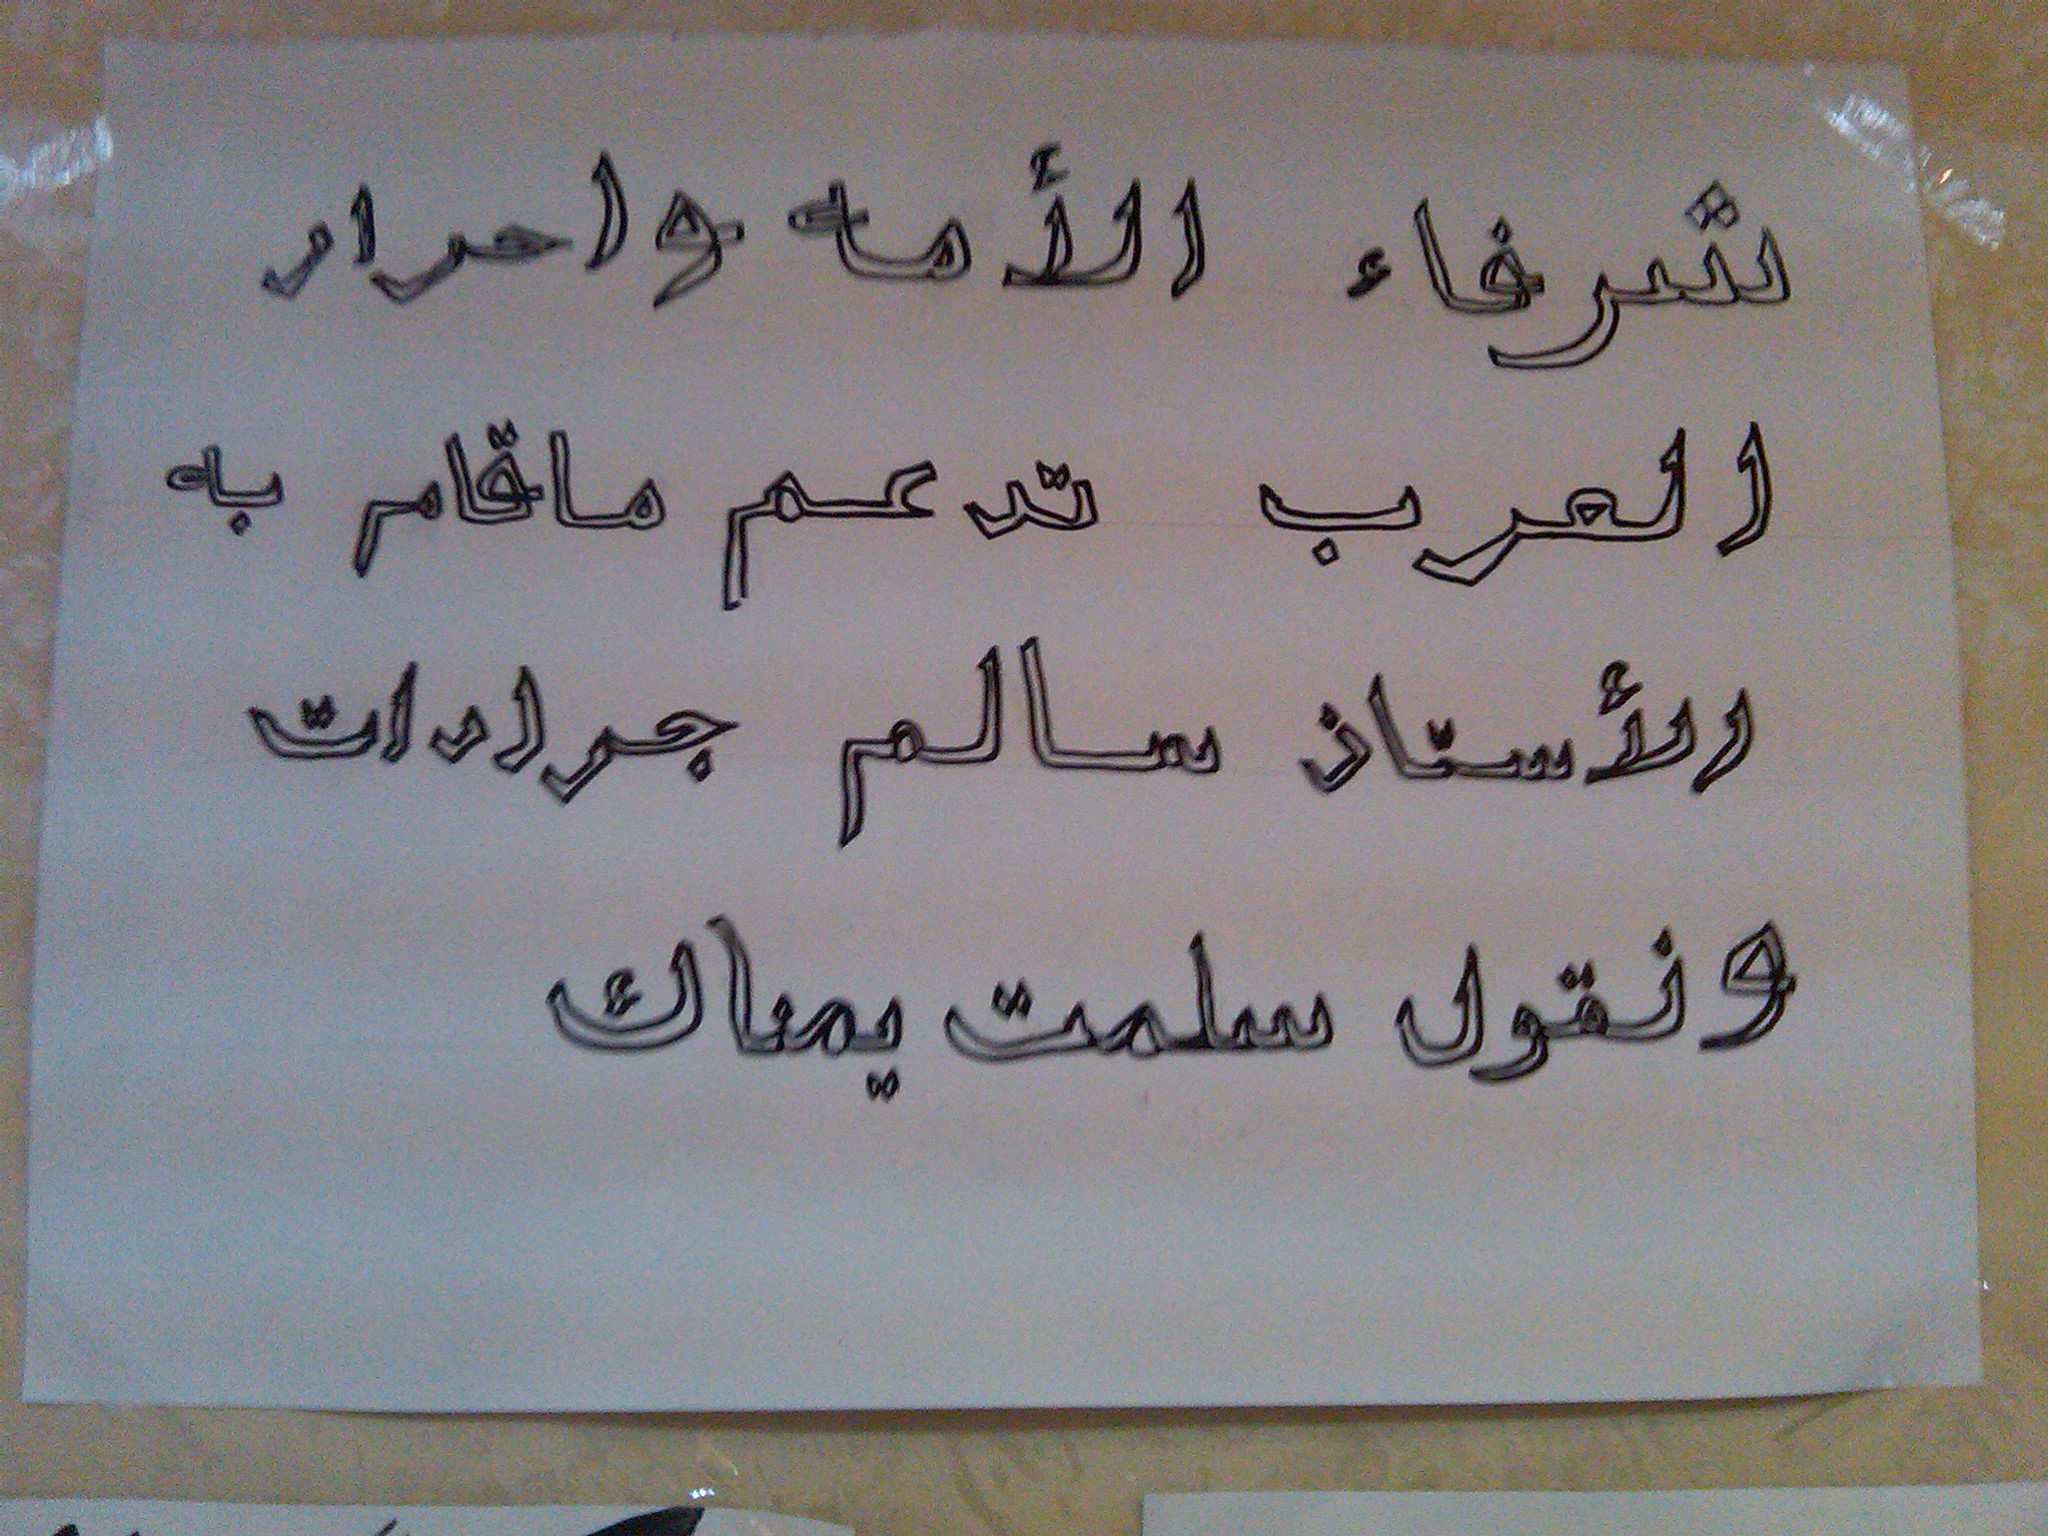 شرفاء الأمه واحرار
العرب تدعم ماقام به
الأستاذ سالم جرادات
ونقول سلمت يمناك